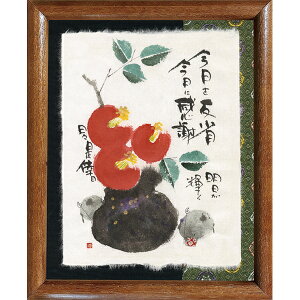 今日を反省
今日に感謝
明日が
輝く
日々是倖日